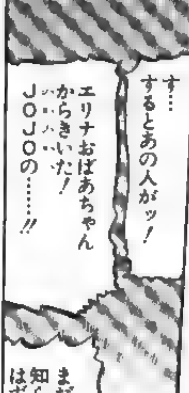 す…
するとあの人がッ！
エリナおばあちゃん
からきいた！
ＪＯＪＯの……!!
まだ
知ら
はず